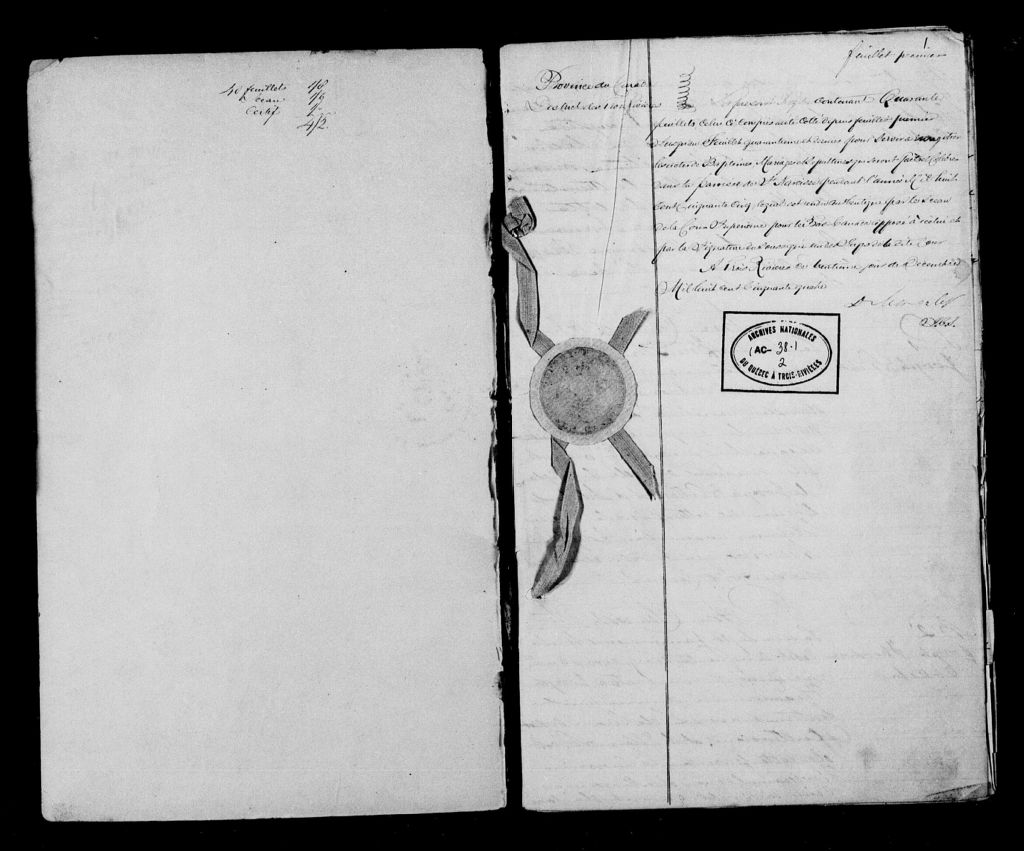 40 feuillets
Sceau
Certif
1
feuillet premier
Province du Canada
District des trois rivieres
Le present Registre contenant Quarante
feuillets celui ci compris cotté depuis feuillet premier
jusqu'au Feuillet quarantieme et dernier pour Servir à enregistrer
les actes de Baptêmes Mariages et Sepultures qui seront faits et Célébrés
dans la Paroisse de St Narcisse pendant l'année Mil huit
Cent Cinquante Cinq, lequel est rendu authentique par le Sceau
de la Cour Superieure pour le Bas Canada apposé à icelui et
par la Signature de Greffier de la dite Cour
A Trois Rivieres ce trentieme jour de Decembre
Mil huit cent Cinquante quatre
ARCHIVES NATIONALES
(AC- 38-1
2
DU QUÉBEC À TROIS-RIVIÈRES